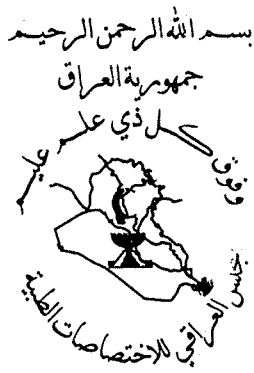 بسم الله الرحمن الرحيم
جمهورية العراق
وفوق كل ذي علم عليم
مجلس العراقي للاختصاصات الطبية